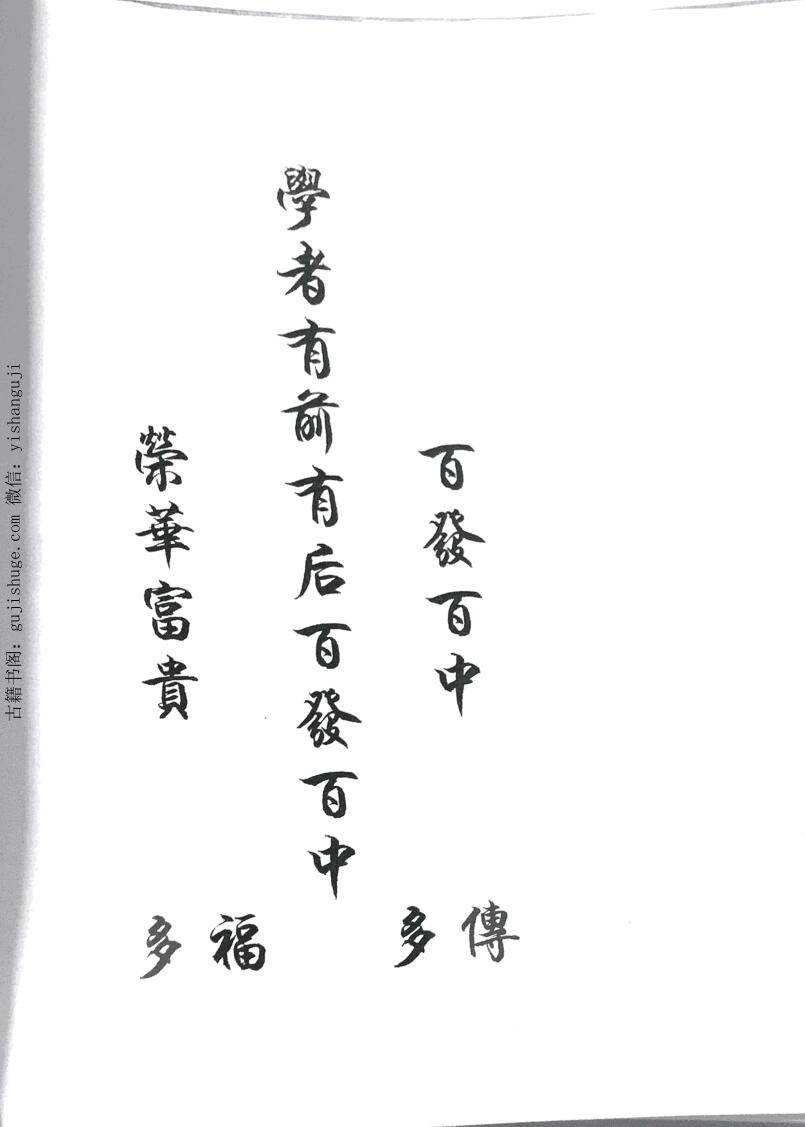 百發百中
學者有前有后百發百中
榮華富貴
傳多
福多
古籍书阁：gujishuge.com 微信：yishanguji